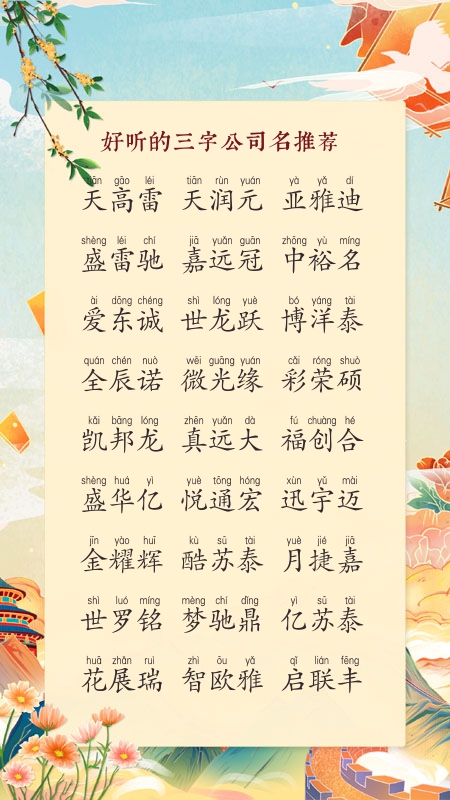 好听的三字公司名推荐
tiān gāo léi tiān rùn yuán yà yǎ dí
天高雷 天润元 亚雅迪
shèng léi chí jiā yuǎn guān zhōng yù míng
盛雷驰 嘉远冠 中裕名
ài dōng chéng shì lóng yuè bó yáng tài
爱东诚 世龙跃 博洋泰
quán chén nuò wēi guāng yuán cǎi róng shuò
全辰诺 微光缘 彩荣硕
kǎi bāng lóng zhēn yuǎn dà fú chuàng hé
凯邦龙 真远大 福创合
shèng huá yì yuè tōng hóng xùn yǔ mài
盛华亿 悦通宏 迅宇迈
jīn yào huī kù sū tài yuè jié jiā
金耀辉 酷苏泰 月捷嘉
shì luó míng mèng chí dǐng yì sū tài
世罗铭 梦驰鼎 亿苏泰
huā zhǎn ruì zhì ōu yǎ qǐ lián fēng
花展瑞 智欧雅 启联丰